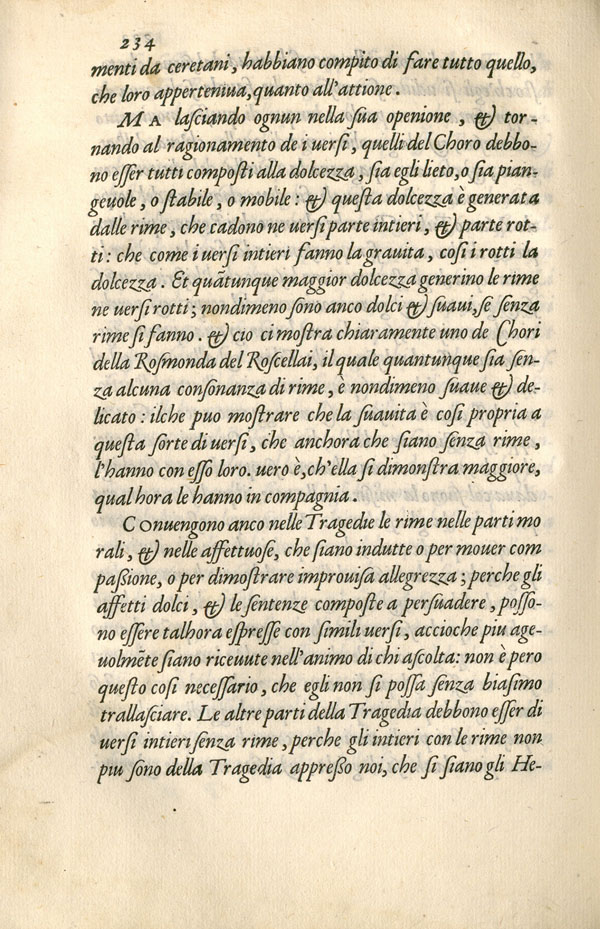 234
menti da ceretani, habbiano compito di fare tutto quello,
che loro apperteniua, quanto all'attione.
MA lasciando ognun nella sua openione, & tor-
nando al ragionamento de i uersi, quelli del Choro debbo-
no esser tutti composti alla dolcezza, sia egli lieto, o sia pian-
geuole, o stabile, o mobile: & questa dolcezza è generata
dalle rime, che cadono ne uersi parte intieri, & parte rot-
ti: che come i uersi intieri fanno la grauita, cosi i rotti la
dolcezza. Et quãtunque maggior dolcezza generino le rime
ne uersi rotti; nondimeno sono anco dolci & suaui, se senza
rime si fanno. & cio ci mostra chiaramente uno de Chori
della Rosmonda del Roscellai, il quale quantunque sia sen-
za alcuna consonanza di rime, è nondimeno suaue & de-
licato: ilche puo mostrare che la suauita è cosi propria a
questa sorte di uersi, che anchora che siano senza rime,
l'hanno con esso loro. uero è, ch'ella si dimonstra maggiore,
qual hora le hanno in compagnia.
COnuengono anco nelle Tragedie le rime nelle parti mo
rali, & nelle affettuose, che siano indutte o per mouer com
paßione, o per dimostrare improuisa allegrezza; perche gli
affetti dolci, & le sentenze composte a persuadere, posso-
no essere talhora espresse con simili uersi, accioche piu age-
uolmẽte siano riceuute nell'animo di chi ascolta: non è pero
questo cosi necessario, che egli non si possa senza biasimo
trallasciare. Le altre parti della Tragedia debbono esser di
uersi intieri senza rime, perche gli intieri con le rime non
piu sono della Tragedia appreßo noi, che si siano gli He-